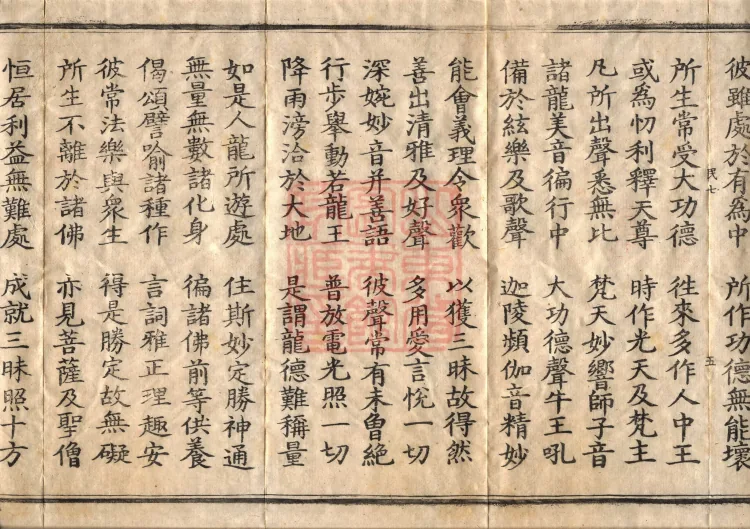 彼雖處於有為中　所作功德無能壞
民七　五
所生常受大功德　往來多作人中王
或為忉利釋天尊　時作光天及梵主
凡所出聲悉無比　梵天妙響師子音
諸龍美音徧行中　大功德聲牛王吼
備於絃樂及歌聲　迦陵頻伽音精妙
能會義理令衆歡　以獲三昧故得然
善出清雅及好聲　多用愛言悅一切
深婉妙音并善語　彼聲常有未曾絶
行步舉動若龍王　普放電光照一切
降雨滂洽於大地　是謂龍德難稱量
如是人龍所遊處　住斯妙定勝神通
無量無數諸化身　徧諸佛前等供養
偈頌譬喻諸種作　言詞雅正理趣安
彼常法樂與衆生　得是勝定故無礙
所生不離於諸佛　亦見菩薩及聖僧
恒居利益無難處　成就三昧照十方